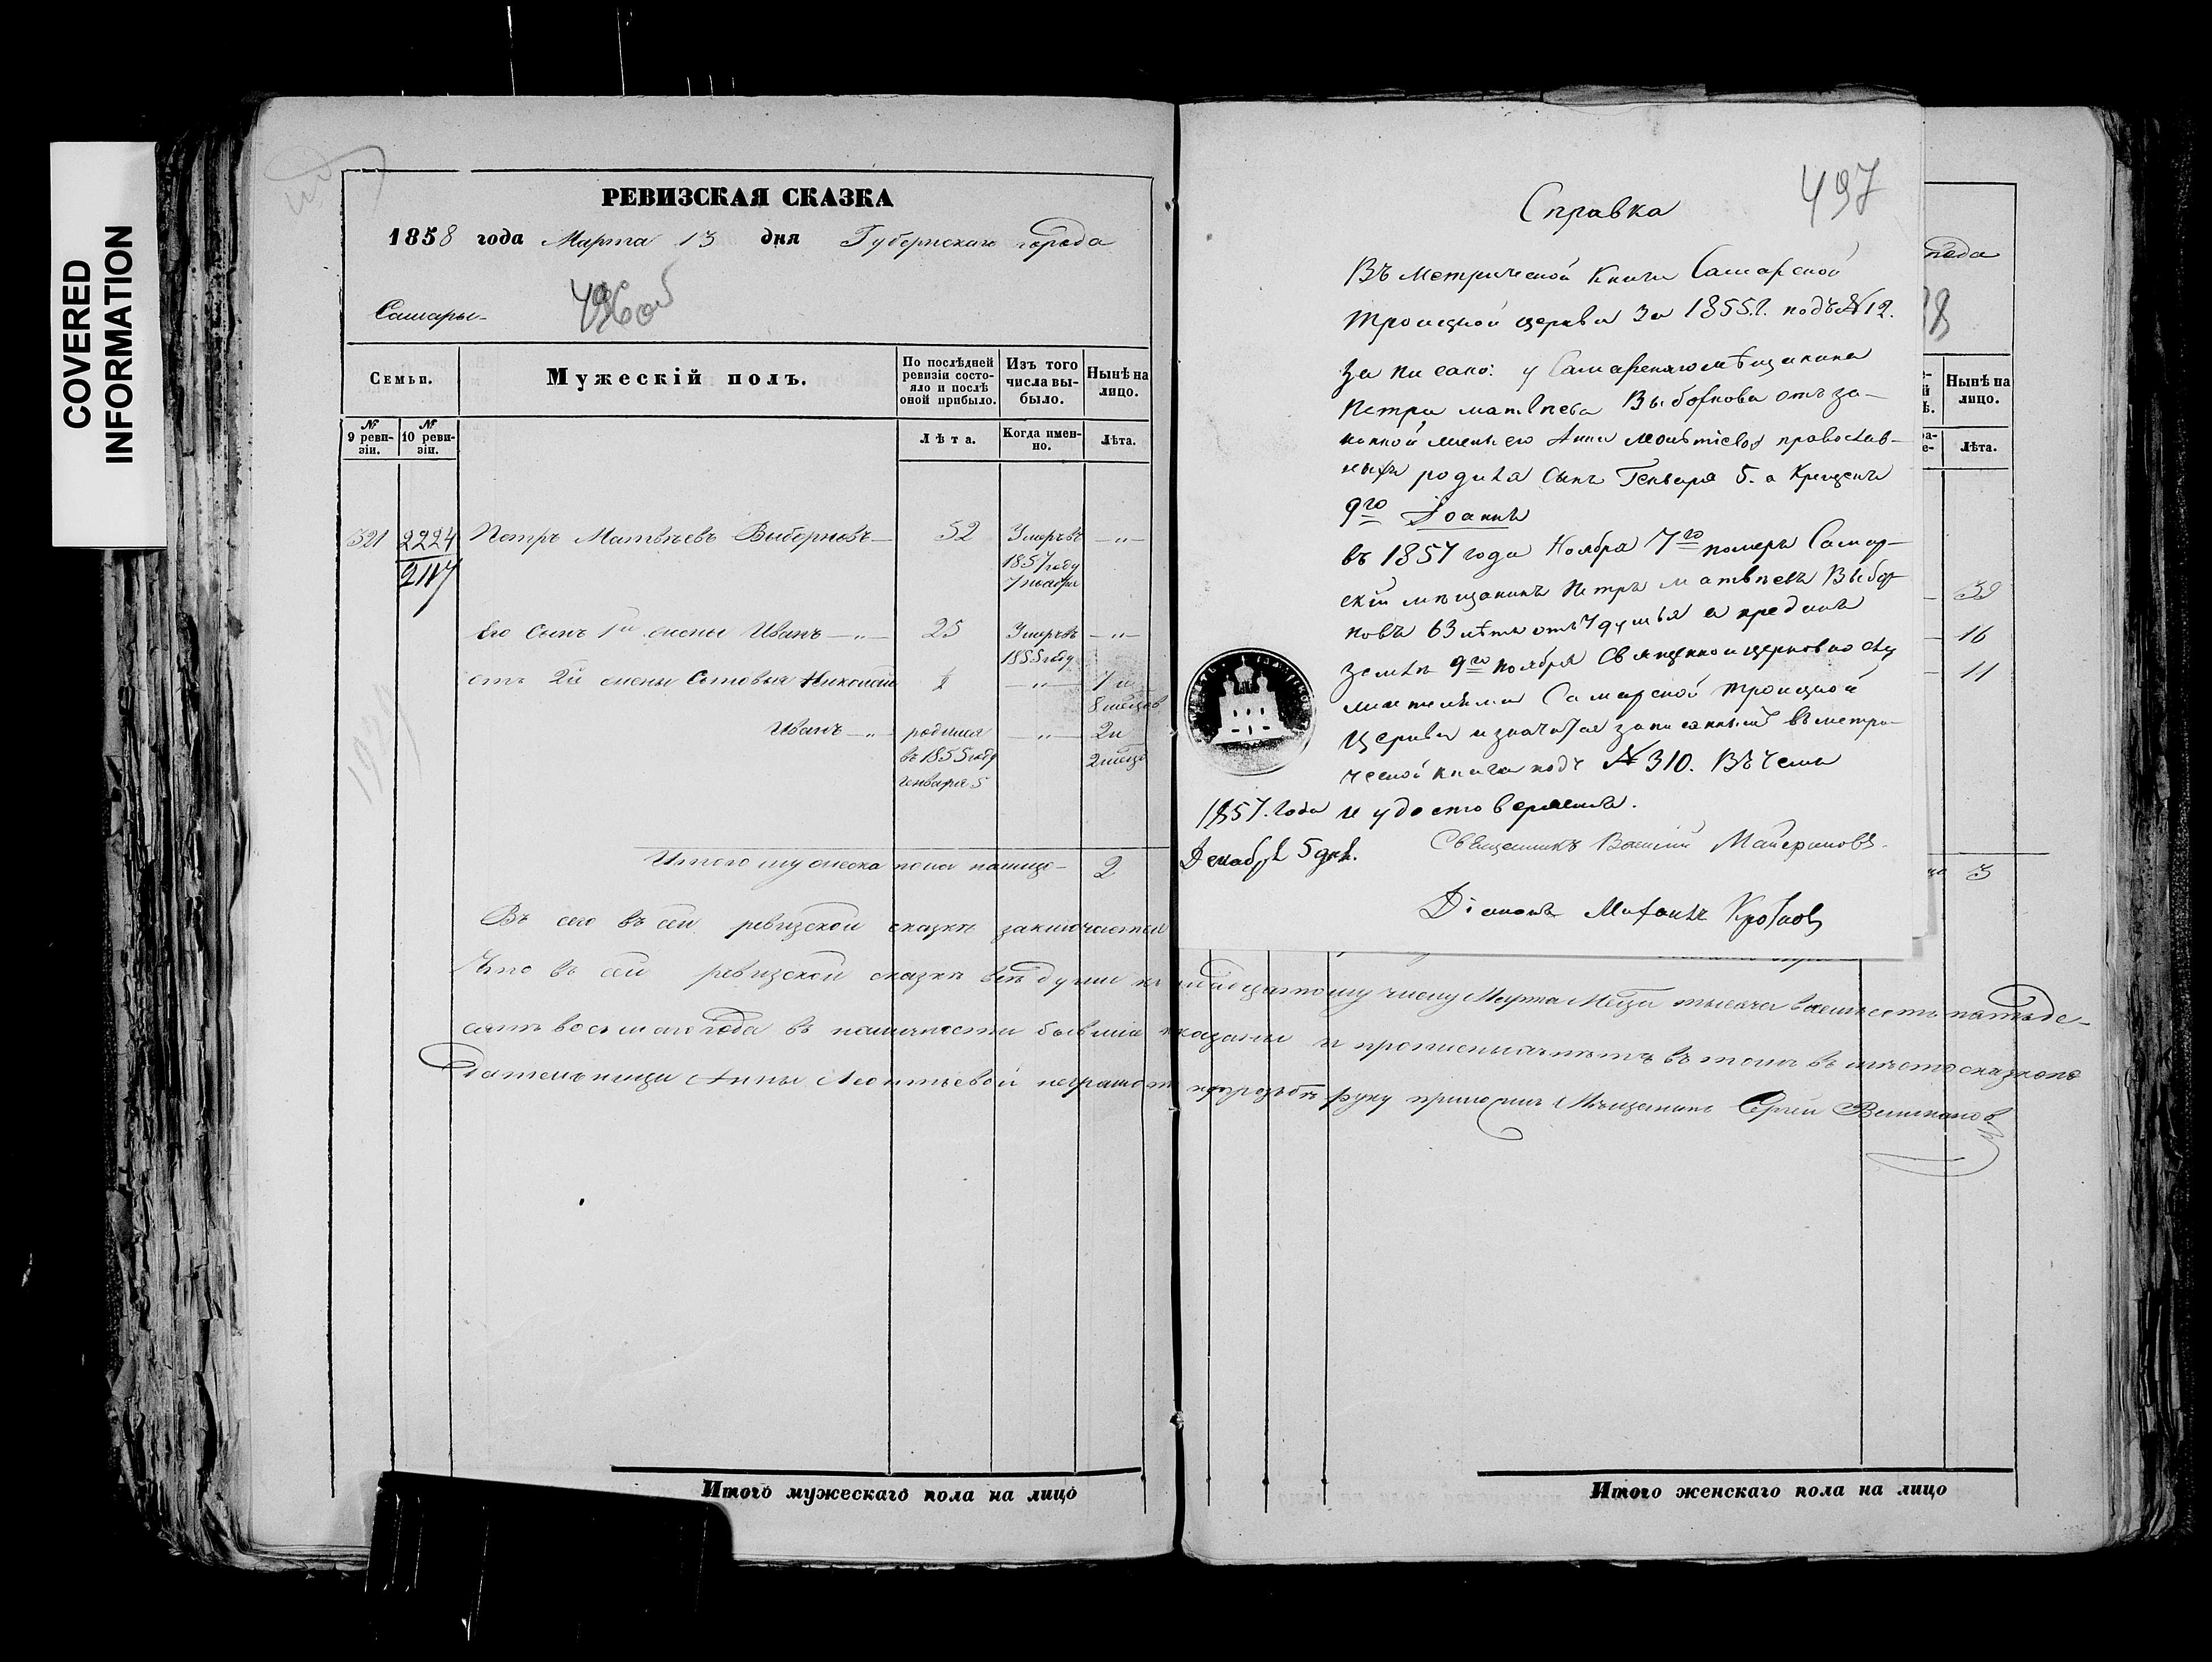 COVERED
INFORMATION
РЕВИЗСКАЯ СКАЗКА
1858 года Марта 13 дня Губернскаго города
Самары
496об
Семьи.
Мужескій полъ.
По послѣдней ревизіи состояло и послѣ оной прибыло.
Изъ того числа выбыло.
Нынѣ на лицо.
№ 9 ревизіи.
№ 10 ревизіи.
Лѣта.
Когда именно.
Лѣта.
321 2224 Петръ Матвѣевъ Выборновъ 52 Умеръ въ —"—
2117 1857 году
7 ноября
Его Сынъ 1й жены Иванъ —"— 25 Умеръ въ —"—
1855 году
отъ 2й жены Сыновья Николай —"—
8 месяцов
Иванъ —"— родился —"— 2 и
въ 1855 году 2 месяц
генваря 5
Итого мужеска пола налицо 2
Въ сей ревизской сказкѣ заключается
Что въ сей ревизской сказкѣ всѣ души числу Марта Мѣсяца тысяча восемьсотъ пятьде-
сятъ восьмаго года въ наличности бывшіе показаны и прописныхъ нѣтъ въ томъ вмѣсто сказкопо
дательницы Анны Леонтьевой неграмотн попрозьбѣ руку приложилъ Мѣщанинъ Сергей
Итого мужескаго пола на лицо
497
Справка
Въ метрической Книги Самарской
Троицкой церкви За 1855 г. подъ № 12.
Записано: у Самарскаго мѣщанина
Петра матвпева Выборнова отъ за-
конной жены его Анны леонътиевой православ-
ныхъ родился Сынъ Генваря 5. а Крещенъ
9го Іоаннъ
въ 1857 года Ноября 7го померъ Самар-
скій мѣщанинъ Петръ матвпевъ Выбор
новъ 63 лѣтъ отъ удушья а преданъ
земли 9го ноября Священно и церковно слу
жителями Самарской Троицкой
Церкви и значится записаннымъ въ метри-
ческой книги подъ № 310. Въ чемъ
1857. года и удостоверяемъ.
Декабря 5 дня.
Священникъ Василій
Діаконъ
Нынѣ на лицо.
Лѣта.
39
16
11
3
Итого женскаго пола на лицо